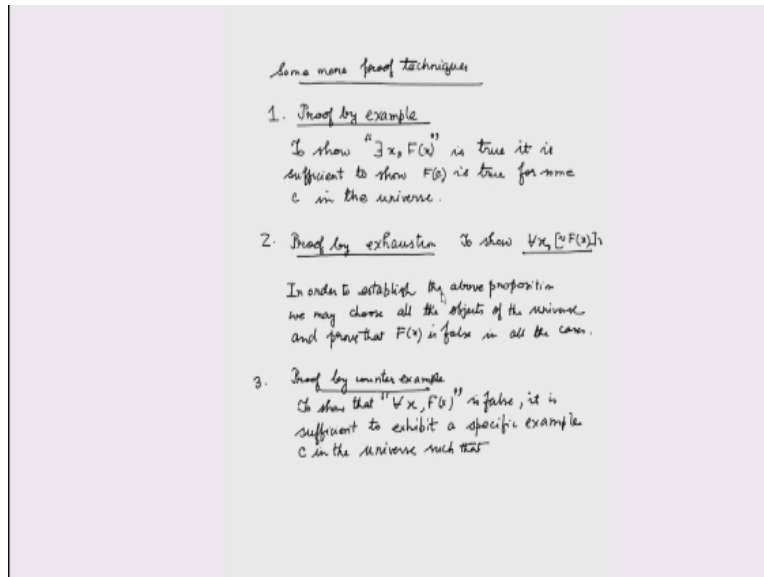 Some more proof techniques
1. Proof by example
To show "∃x, F(x)" is true it is
sufficient to show F(c) is true for some
c in the universe.
2. Proof by exhaustion To show ∀x, [~F(x)]
In order to establish the above proposition
we may choose all the objects of the universe
and prove that F(x) is false in all the cases.
3. Proof by counter example
To show that "∀x, F(x)" is false, it is
sufficient to exhibit a specific example
c in the universe such that